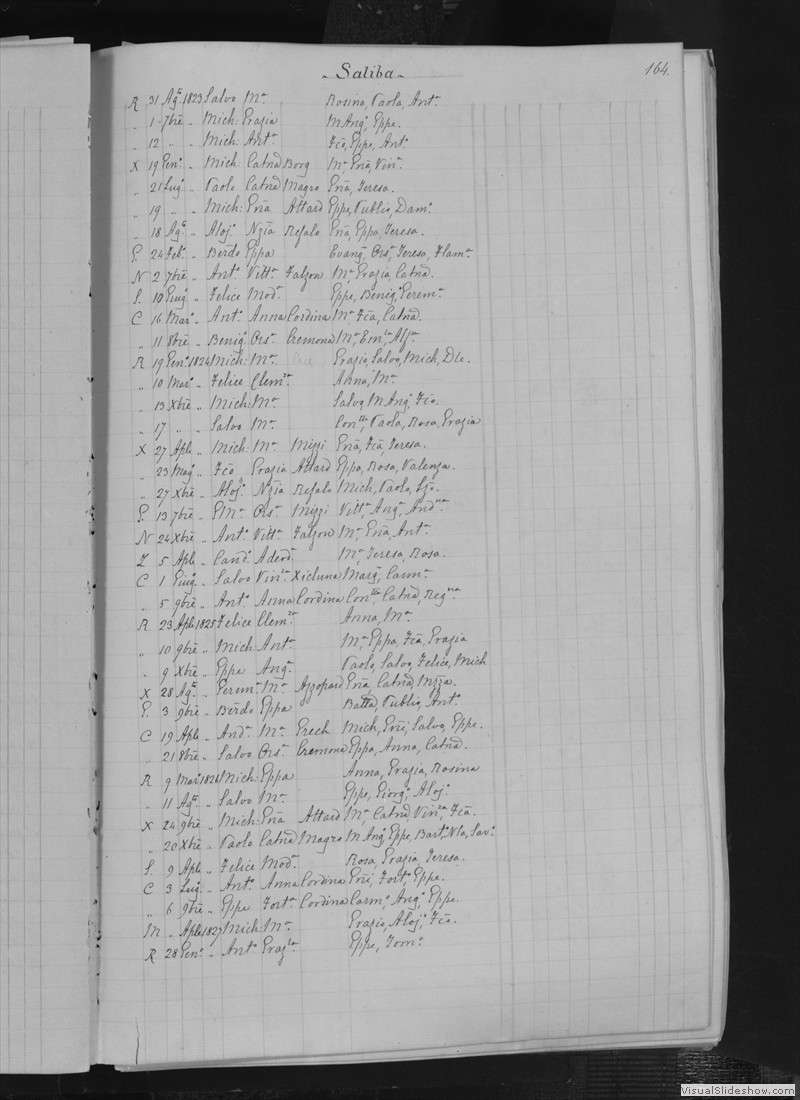 - Saliba -
164.
R 31 Ag.° 1823 Salvo Mª Rosina, Paola, Antª
„ 1 - 7bre „ Mich: Grazia M Ang.ª, Gppe.
„ 12 „ „ Mich: Antª Fca, Gppe, Ant°
X 19 Gen.° „ Mich: Catnã Borg Mª, Gnã, Vinª
„ 21 Lug.° „ Paolo Catnã Magro Gnã, Teresa.
„ 19 „ „ Mich: Gnã Attard Gppe, Publio, Dam.°
„ 18 Ag.° „ Aloj.° Nzia Refalo Gnã, Gppa, Teresa.
G. 24 Feb.° „ Berdo Gppa Evang.ª, Orsª, Teresa, Flam.ª
N 2 7bre „ Ant.° Vittª Falzon Mª Grazia, Catnã.
S. 10 Giug.° „ Felice Mod.ª Gppe, Benig.° Gerem.ª
C 16 Mar.° „ Ant.° Anna Cordina Mª Fca, Catnã.
„ 11 8bre „ Benig.° Orsª Cremona Mª, Em.la, Aljª
R 19 Gen.° 1824 Mich: Mª Grazio, Salvo, Mich, Dle.
„ 10 Mar.° „ Felice Clem.za Anna, Mª
„ 13 Xbre „ Mich: Mª Salvo, M Ang.ª, Fco.
„ 17 „ „ Salvo Mª Con.tta, Paola, Rosa, Grazia
X 27 Aple „ Mich: Mª Mizzi Gnã, Fca, Teresa.
„ 23 Mag.° „ Fco Grazia Attard Gppa, Rosa, Valenza.
„ 27 Xbre „ Aloj.° Nzia Refalo Mich, Paolo,
G. 13 7bre „ G.Mª Orsª Mizzi Vittª, Ang.ª, And.na
N 24 Xbre „ Ant.° Vittª Falzon Mª, Gnã, Antª
Z 5 Aple „ Cand.° Adeod.ª Mª, Teresa, Rosa.
C 1 Giug.° „ Salvo Vin.za Xicluna Marg.ª, Carm.ª
„ 5 9bre „ Ant.° Anna Cordina Con.tta, Catnã, Reg.na
R 23 Aple 1825 Felice Clem.za Anna, Mª
„ 10 9bre „ Mich: Antª Mª, Gppa, Fca, Grazia
„ 9 Xbre „ Gppe Ang.ª Paolo, Salvo, Felice, Mich
X 28 Ag.° „ Gerem.ª Mª Azzopard Gnã, Catnã, Nzza.
G. 3 9bre „ Berdo Gppa Batta, Publio, Ant.°
C 19 Aple „ And.ª Mª Grech Mich, Gnri, Salvo, Gppe.
„ 21 8bre „ Salvo Orsª Cremona Gppa, Anna, Catnã.
R 9 Mar.° 1826 Mich: Gppa Anna, Grazia, Rosina
„ 11 Ag.° „ Salvo Mª Gppe, Giorg.°, Aloj.°
X 24 9bre „ Mich: Gnã Attard Mª Catnã, Vin.za, Fca.
„ 20 Xbre „ Paolo Catnã Magro M Ang.°, Gppe, Bart.°, Nla, Sav.°
S. 9 Aple „ Felice Mod.ª Rosa, Grazia, Teresa.
C 3 Lug.° „ Ant.° Anna Cordina Gnri, Fort.°, Gppe.
„ 6 9bre „ Gppe Fort.ª Cordina Carm.°, Ang.°, Gppe.
M „ Aple 1827 Mich: Mª Grazio, Aloj.°, Fco.
R 28 Gen.° „ Ant.° Graz.la Gppe, Tom.°
VisualSlideshow.com